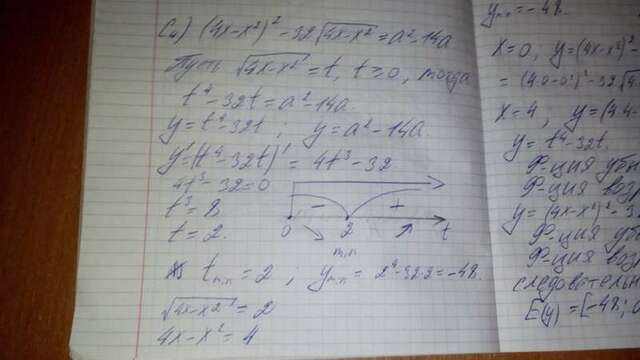 C₄) (4x-x²)² - 32√(4x-x²) = a² - 14a
Пусть √(4x-x²) = t, t ≥ 0, тогда
t⁴ - 32t = a² - 14a.
y = t⁴ - 32t ; y = a² - 14a.
y' = (t⁴ - 32t)' = 4t³ - 32
4t³ - 32 = 0
t³ = 8
t = 2.
- +
0 2 t
min
t min = 2 ; y min = 2⁴ - 32·2 = -48.
√(4x-x²) = 2
4x - x² = 4
y min = -48.
x = 0, y = (4x-x²)² -
= (4·0-0²)² - 32√4
x = 4 ; y = (4·4
y = t⁴ - 32t.
Ф-ция убы
Ф-ция воз
y = (4x-x²)² - 3
Ф-ция уб
Ф-ция воз
следовательн
E(y) = [-48; 0